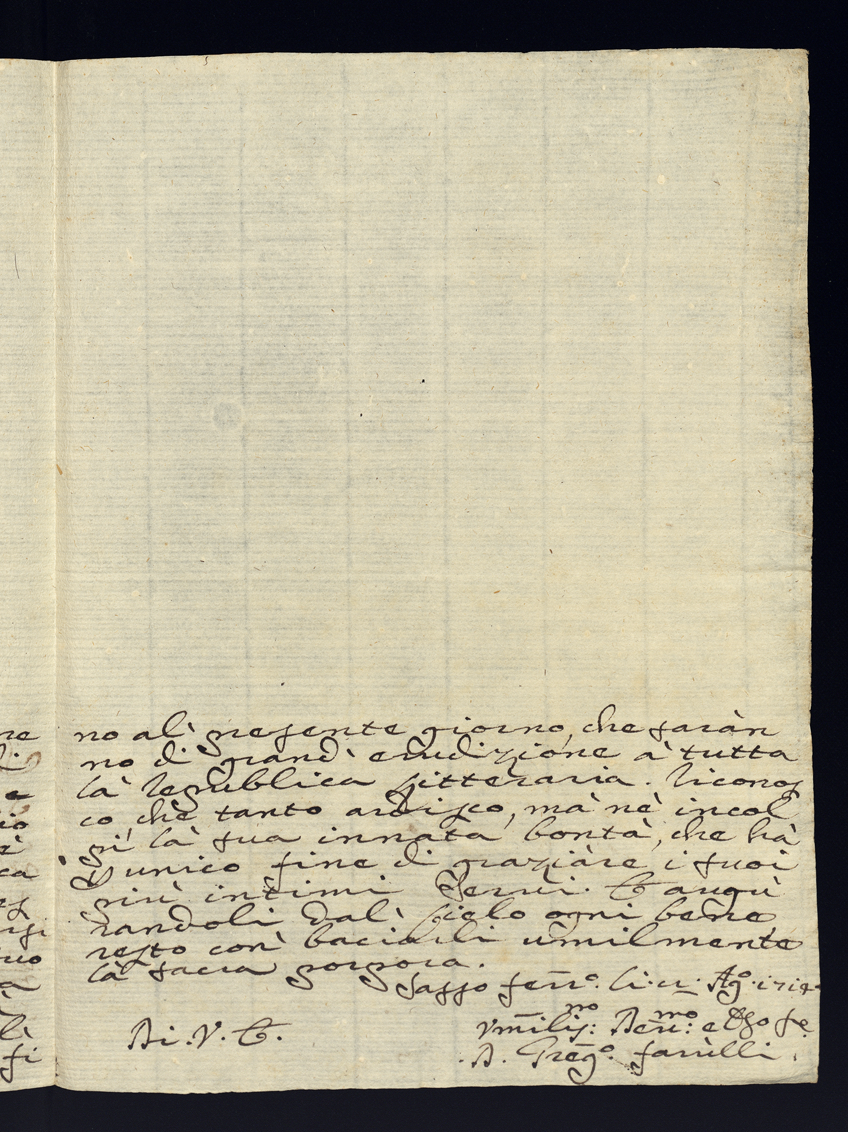 no al presente giorno, che saràn
no di grandi erudizione à tutta
là Republica Litteraria. Ricono
co che tanto ardisco, mà nè incol
pi là sua innata bontà, che hà
unico fine di graziàre i suoi
più intimi Servi. E augu
randoli dal Cielo ogni bene
resto con baciarli umilmente
là sacra porpora.
Sasso ferr.o li Ag.o
Bi. V. E.
Vmiliss:mo e
D. Greg.o farulli.